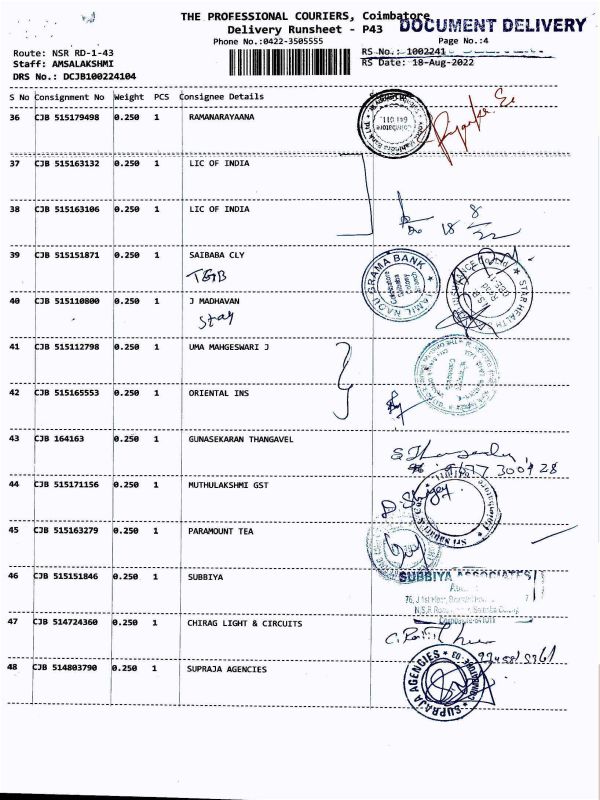 THE PROFESSIONAL COURIERS, Coimbatore
DOCUMENT DELIVERY
Delivery Runsheet - P43
Phone No.:0422-3505555
Page No.:4
Route: NSR RD-1-43
RS No.: 1002241
Staff: AMSALAKSHMI
RS Date: 18-Aug-2022
DRS No.: DCJB100224104
S No Consignment No Weight PCS Consignee Details
36 CJB 515179498 0.250 1 RAMANARAYAANA
Coimbatore
641 011.
37 CJB 515163132 0.250 1 LIC OF INDIA
38 CJB 515163106 0.250 1 LIC OF INDIA
18 8/22
39 CJB 515151871 0.250 1 SAIBABA CLY
TGB
TAMIL NADU GRAMA BANK
STAR HEALTH
40 CJB 515110800 0.250 1 J MADHAVAN
Stay
41 CJB 515112798 0.250 1 UMA MAHGESWARI J
42 CJB 515165553 0.250 1 ORIENTAL INS
43 CJB 164163 0.250 1 GUNASEKARAN THANGAVEL
44 CJB 515171156 0.250 1 MUTHULAKSHMI GST
45 CJB 515163279 0.250 1 PARAMOUNT TEA
46 CJB 515151846 0.250 1 SUBBIYA
SUBBIYA ASSOCIATES
47 CJB 514724360 0.250 1 CHIRAG LIGHT & CIRCUITS
48 CJB 514803790 0.250 1 SUPRAJA AGENCIES
SUPRAJA AGENCIES